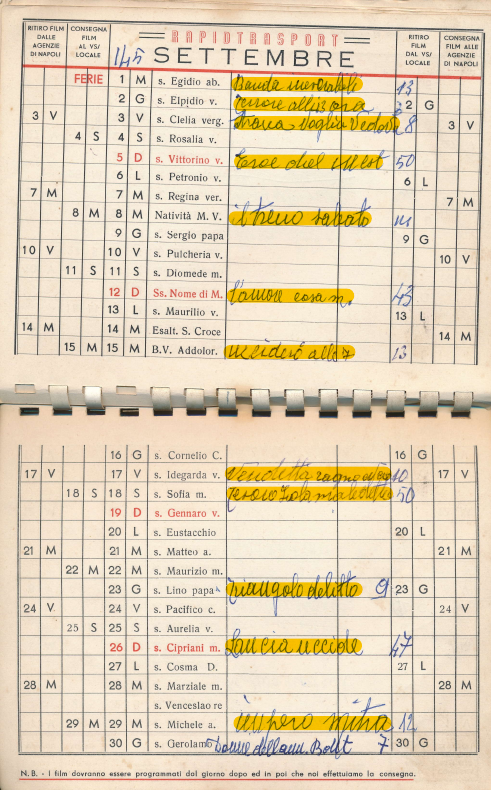 RITIRO FILM DALLE AGENZIE DI NAPOLI
CONSEGNA FILM AL VS/ LOCALE
RAPIDTRASPORT
145 SETTEMBRE
RITIRO FILM DAL VS/ LOCALE
CONSEGNA FILM ALLE AGENZIE DI NAPOLI
FERIE 1 M s. Egidio ab. Banda 13
2 G s. Elpidio v. terrore 2 G
3 V 3 V s. Clelia verg. Voglia Vedova 8 3 V
4 S 4 S s. Rosalia v.
5 D s. Vittorino v. Eroe del West 50
6 L s. Petronio v. 6 L
7 M 7 M s. Regina ver. 7 M
8 M 8 M Natività M. V. il treno
9 G s. Sergio papa 9 G
10 V 10 V s. Pulcheria v. 10 V
11 S 11 S s. Diomede m.
12 D Ss. Nome di M. L'amore cosa m. 43
13 L s. Maurilio v. 13 L
14 M 14 M Esalt. S. Croce 14 M
15 M 15 M B.V. Addolor. ucciderò alle 7 13
16 G s. Cornelio C. 16 G
17 V 17 V s. Idegarda v. Vendetta ragno 10 17 V
18 S 18 S s. Sofia m. Tesoro Isola maledetta 50
19 D s. Gennaro v.
20 L s. Eustacchio 20 L
21 M 21 M s. Matteo a. 21 M
22 M 22 M s. Maurizio m.
23 G s. Lino papa triangolo delitto 9 23 G
24 V 24 V s. Pacifico c. 24 V
25 S 25 S s. Aurelia v.
26 D s. Cipriani m. Lancia uccide 47
27 L s. Cosma D. 27 L
28 M 28 M s. Marziale m. 28 M
s. Venceslao re
29 M 29 M s. Michele a. impero mitra 12
30 G s. Gerolamo Donne 7 30 G
N.B. - I film dovranno essere programmati dal giorno dopo ed in poi che noi effettuiamo la consegna.